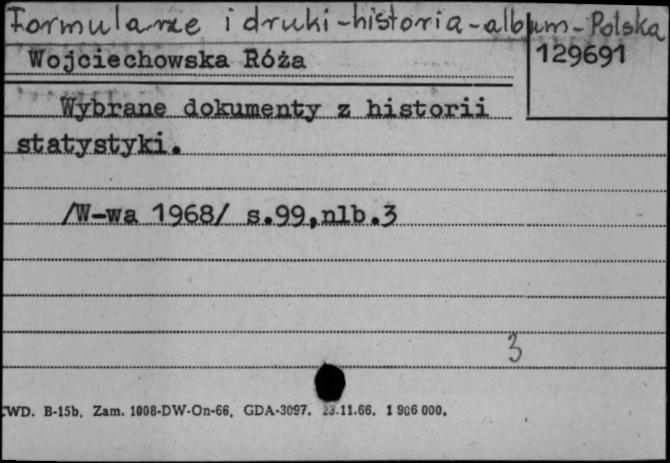 Formularze i druki-historia-album-Polska
Wojciechowska Róża
129691
Wybrane dokumenty z historii
statystyki.
/W-wa 1968/ s.99,nlb.3
3
WD. B-15b. Zam. 1098-DW-On-66. GDA-3097. 23.11.66. 1 906 000.